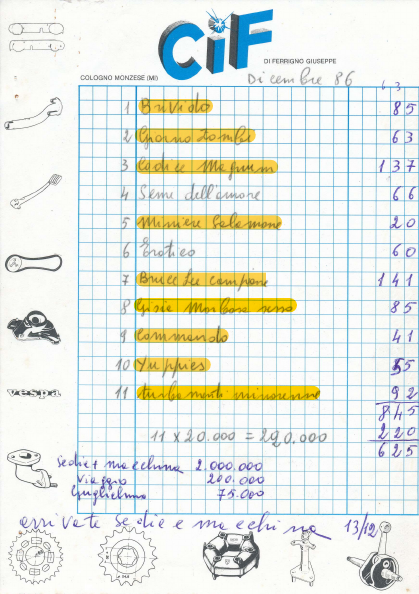 CiF
DI FERRIGNO GIUSEPPE
COLOGNO MONZESE (MI) Dicembre 86
1 Brivido 85
2 Giorno Zombi 63
3 Codice Magnum 137
4 Seme dell'amore 66
5 Miniere Salomone 62
6 Erotico 60
7 Bruce Lee campione 141
8 Morbosa sesso 85
9 Commando 41
10 Yuppies 55
11 turbamenti minorenne 92
845
11 x 20.000 = 220.000 220
625
Sedie + macchina 2.000.000
Viaggio 200.000
Guglielmo 75.000
arrivate sedie e macchina 13/12
vespa